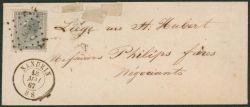 Liége via St Hubert
Messieurs Philips frères
Négociants
NANDRIN
18
67